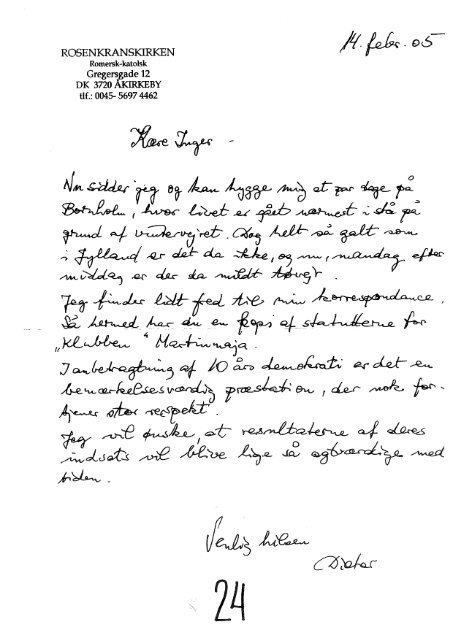 ROSENKRANSKIRKEN
Romersk-katolsk
Gregersgade 12
DK 3720 ÅKIRKEBY
tlf.: 0045- 5697 4462
14. febr. 05
Kære Inger -
Nu sidder jeg og kan hygge mig et par dage på
Bornholm, hvor livet er gået nærmest i stå på
grund af vintervejret. Dog helt så galt som
i Jylland er det da ikke, og nu, mandag efter
middag er der da mildt tøvejr.
Jeg finder lidt fed til min korrespondance.
Så hermed har du en kopi af statutterne for
"Klubben" Martinmaja.
I anbetragtning af 10 års demokrati er det en
bemærkelsesværdig præstation, der nok for-
tjener stor respekt.
Jeg vil ønske, at resultaterne af deres
indsats vil blive lige så agtværdige med
tiden.
Venlig hilsen
Dieter
24